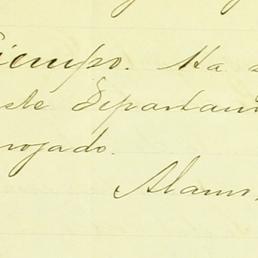 tiempo. Ha
este Departam
rogado.
Alam